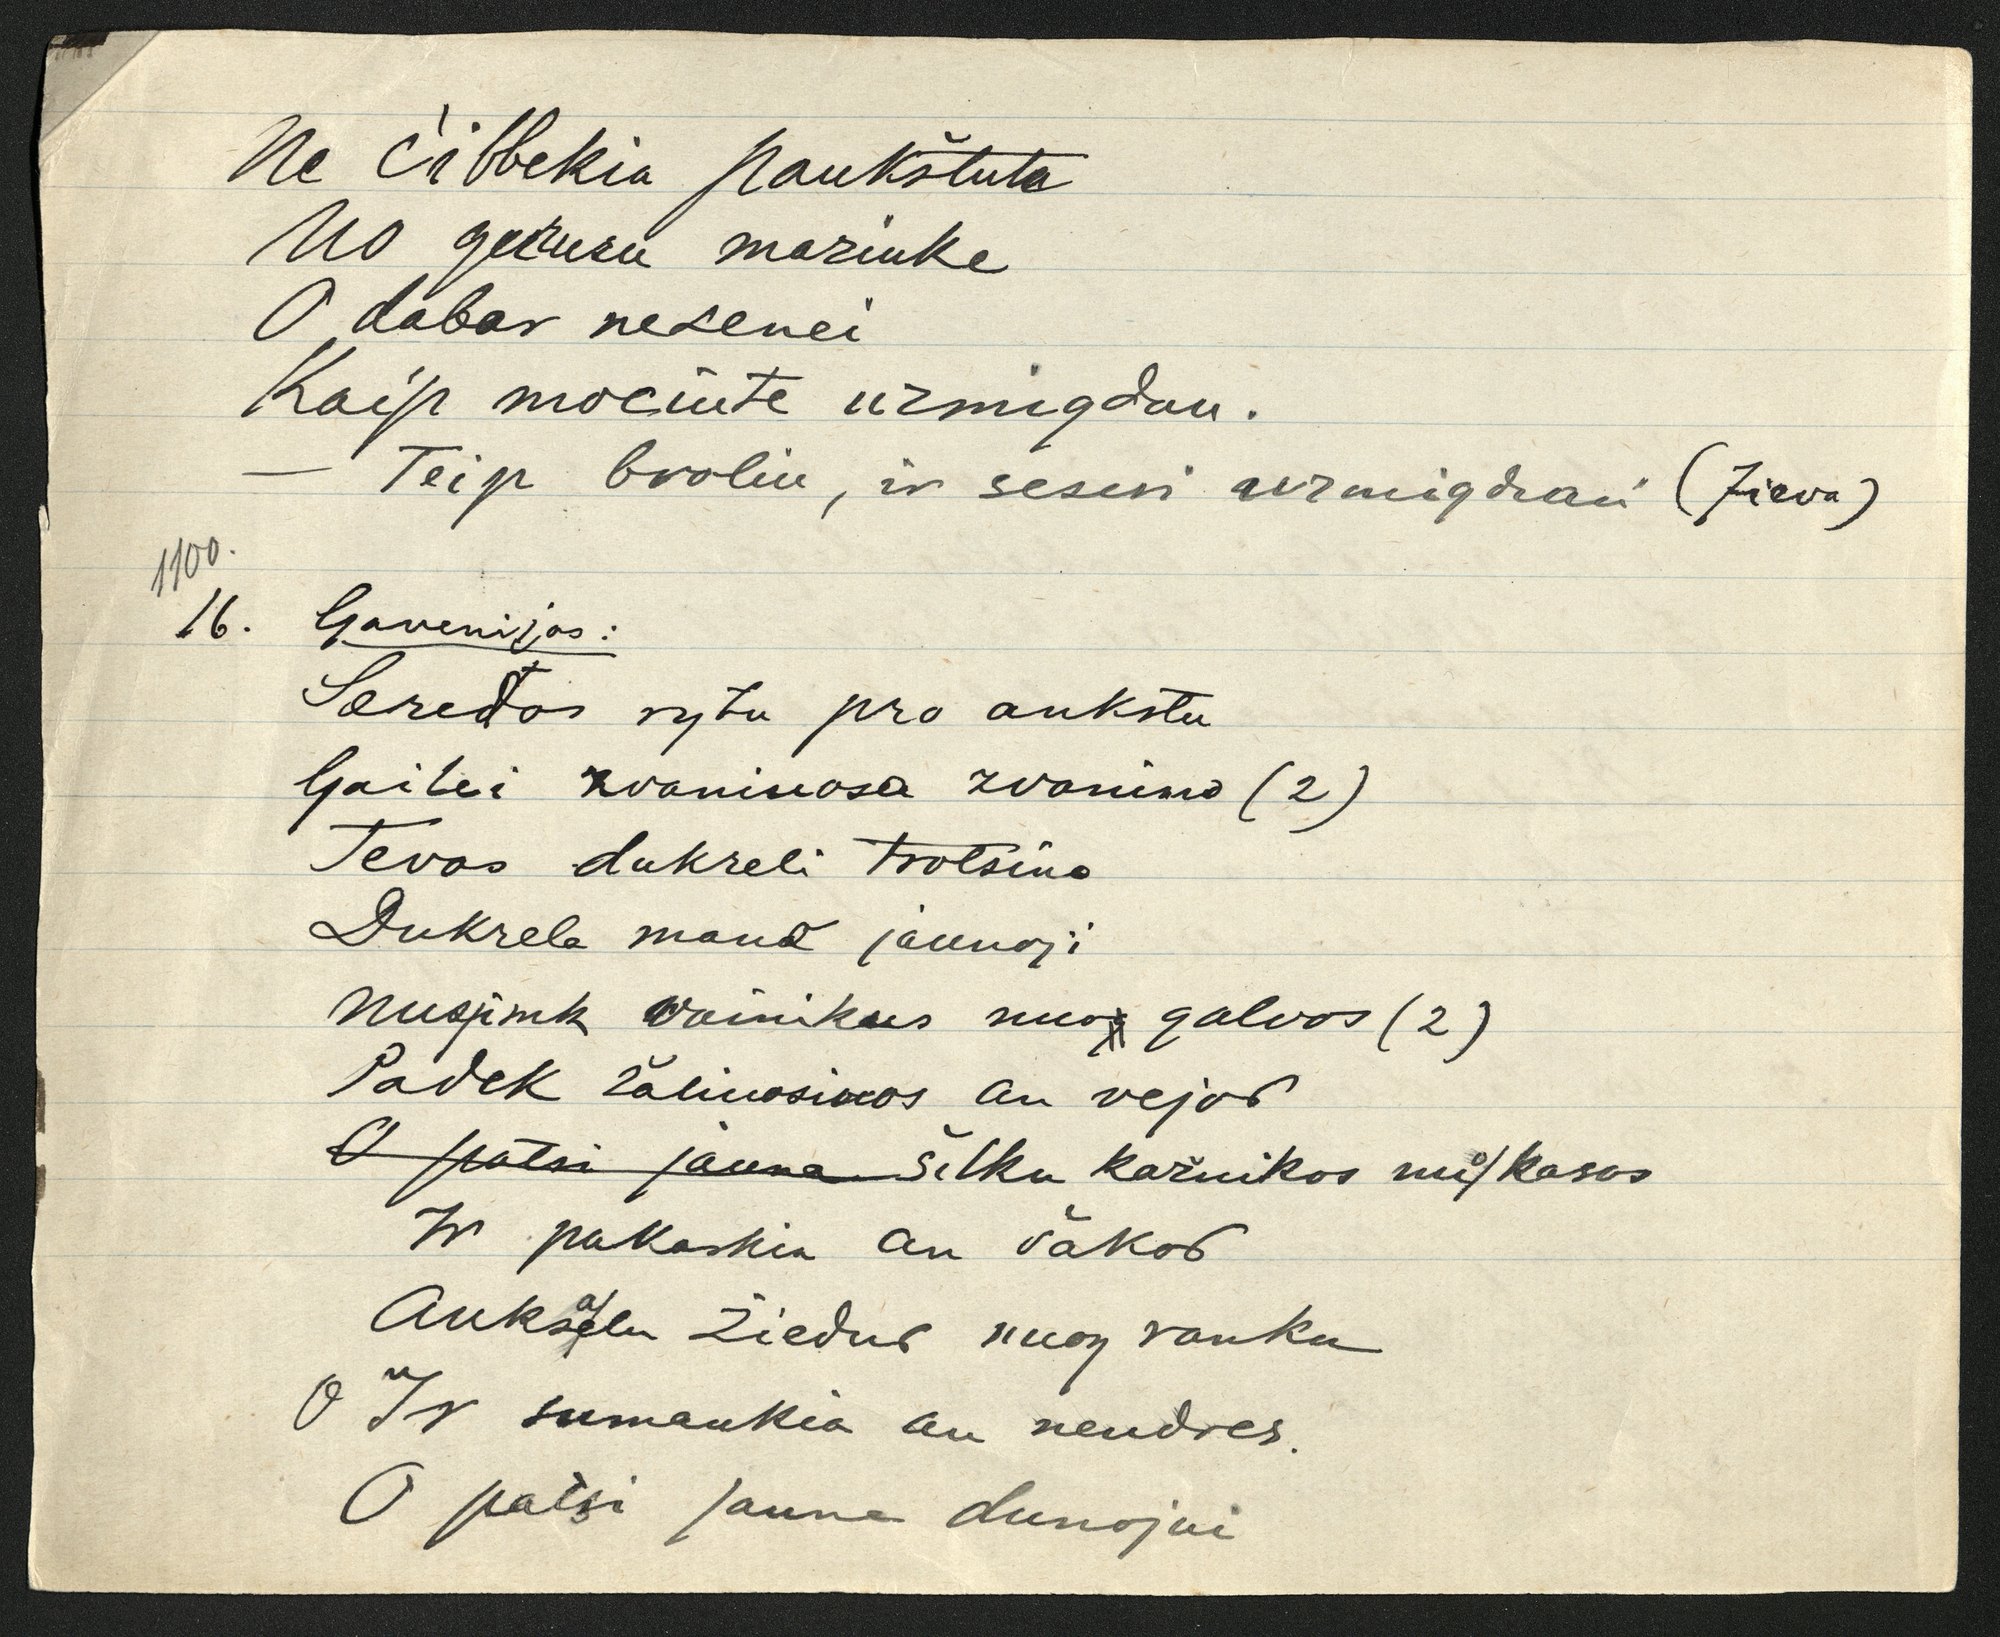 Ne čibbekia paukštuta
No gurusu mariuke
O dabar nesenei
Kaip mociute uzmigdau.
— Teip broliu, ir seseri uzmigdzau (Zieva)
1100.
16. Gavenijos:
Seredos rytu pro aukstu
Gailei zvaniuosa zvanino (2)
Tevas dukreli trotsino
Dukrela mana jaunoji
Nusjimk vainikus nuog galvos (2)
Padek žaliuosiuos an vejos
O patsi jauna šilku kaznikos nuo kasos
Ir pakaskia an šakos
Auksalu žiedus nuog ranku
O Ir sumaukia an nendres.
O patsi jauna dunojui